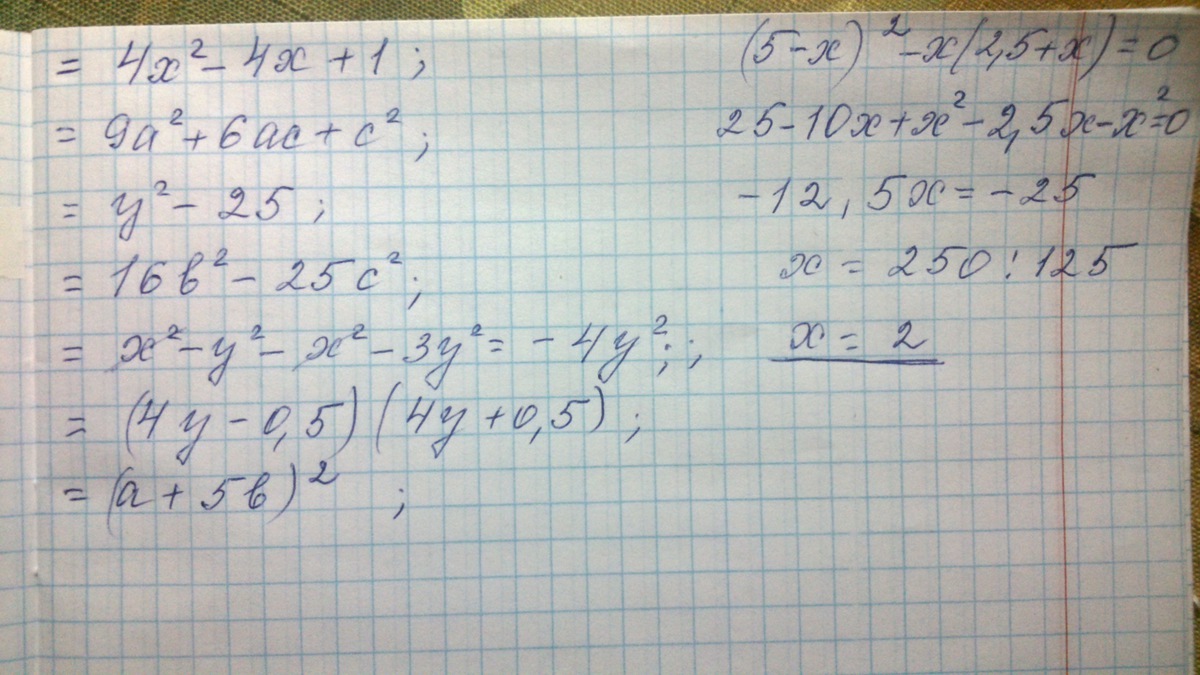 = 4x² - 4x + 1 ;
= 9a² + 6ac + c² ;
= y² - 25 ;
= 16в² - 25c² ;
= x² - y² - x² - 3y² = - 4y² ; ;
= (4y - 0,5) (4y + 0,5) ;
= (a + 5в)² ;
(5 - x)² - x(2,5 + x) = 0
25 - 10x + x² - 2,5x - x² = 0
- 12,5x = - 25
x = 250 : 125
x = 2